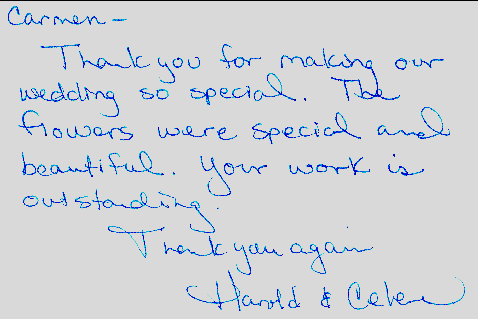 Carmen -
Thank you for making our
wedding so special. The
flowers were special and
beautiful. Your work is
outstanding.
Thank you again
Harold &